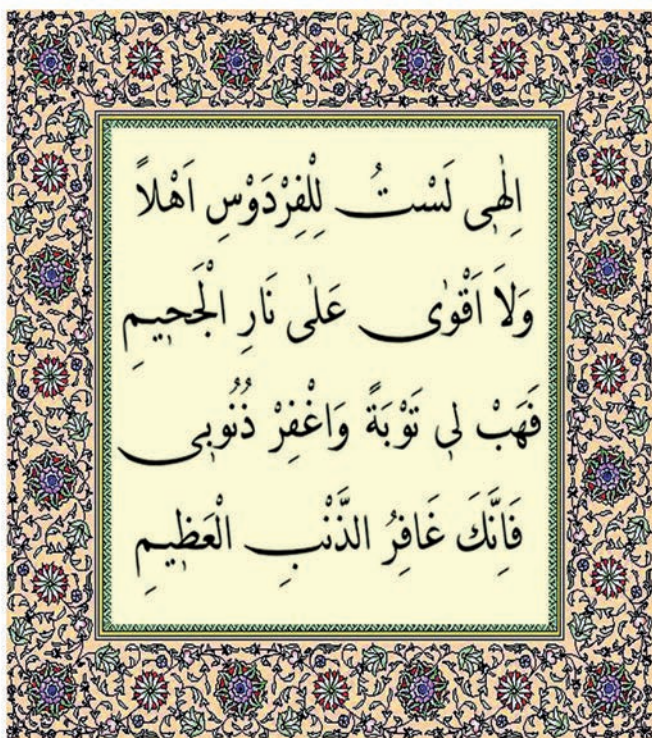 اِلٰهٖى لَسْتُ لِلْفِرْدَوْسِ اَهْلاً
وَلاَ اَقْوٰى عَلٰى نَارِ الْجَحٖيمِ
فَهَبْ لٖى تَوْبَةً وَاغْفِرْ ذُنُوبٖى
فَاِنَّكَ غَافِرُ الذَّنْبِ الْعَظٖيمِ